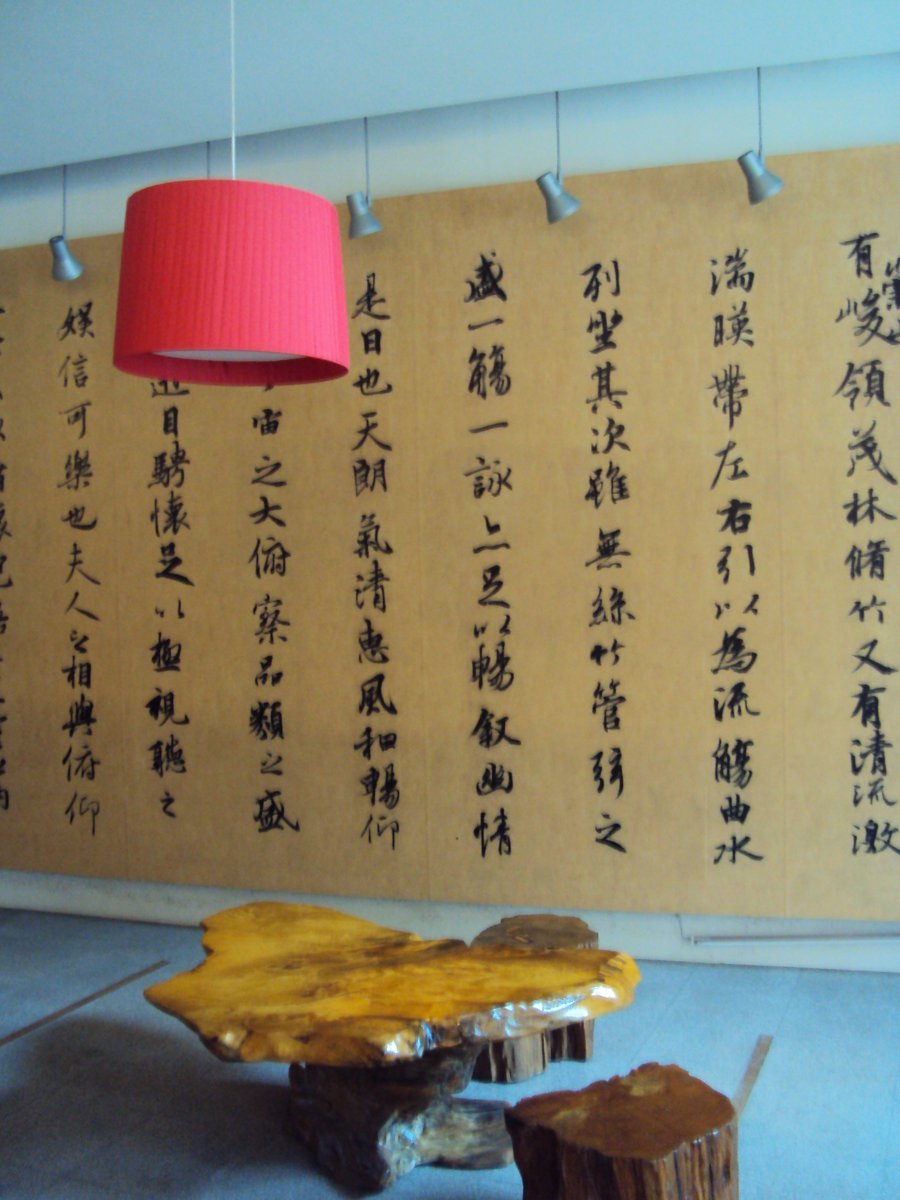 崇山
有峻領茂林脩竹又有清流激
湍暎帶左右引以為流觴曲水
列坐其次雖無絲竹管弦之
盛一觴一詠亦足以暢叙幽情
是日也天朗氣清惠風和暢仰
宙之大俯察品類之盛
遊目騁懷足以極視聽之
娛信可樂也夫人之相與俯仰